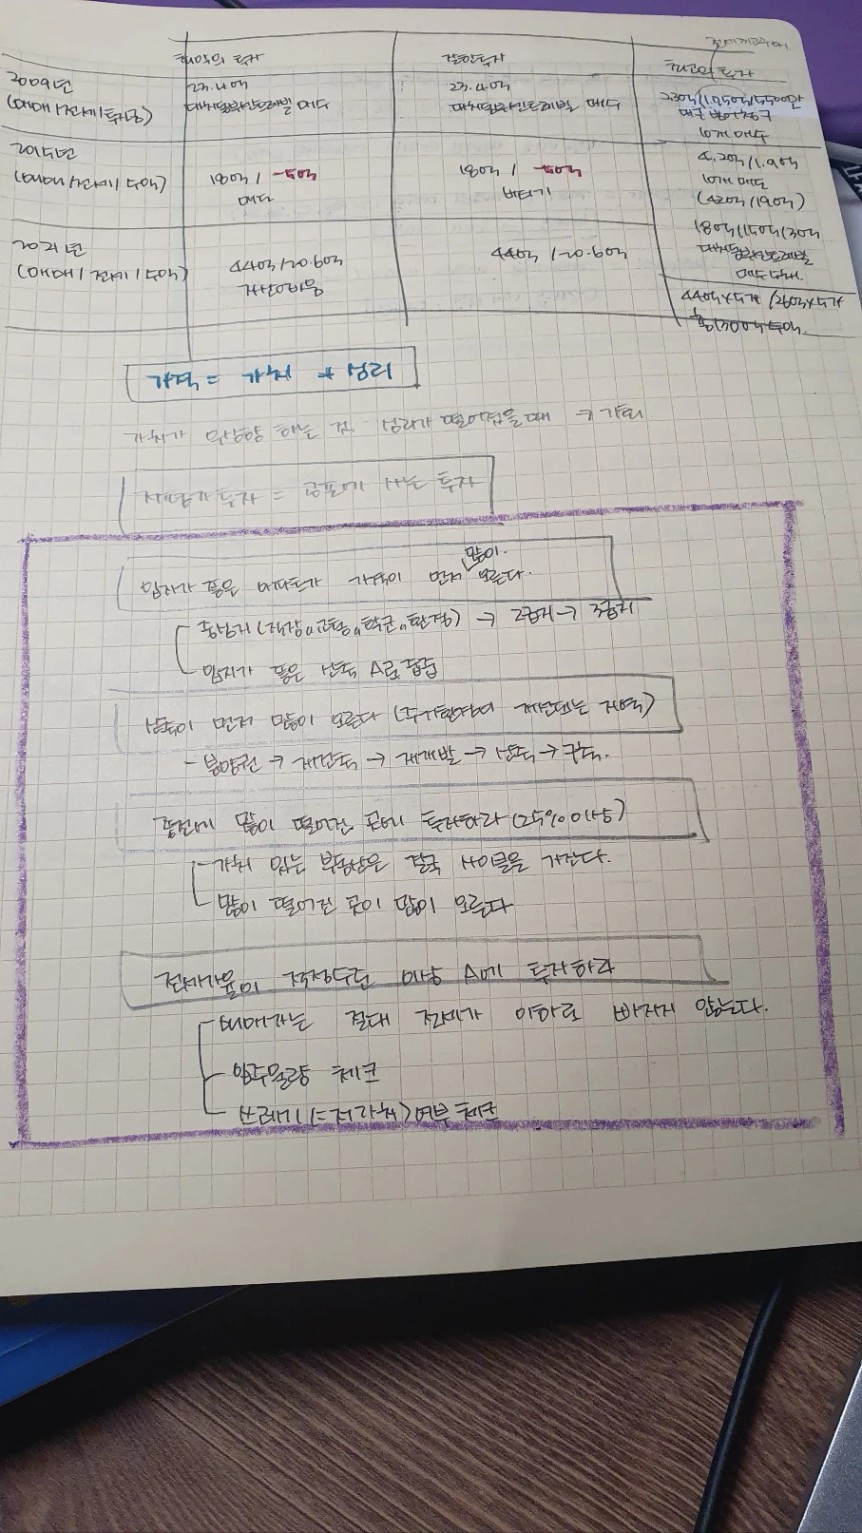 최악의 투자
평범한 투자
최고의 투자
2009년
(매매/전세/투자금)
23.4억
대치동부센트레빌 매수
23.4억
대치동부센트레빌 매수
2.30억/1.750억/5500만
대구 수성구
10개 매수
2015년
(매매/전세/수익)
18억 / -5억
매도
18억 / -5억
버티기
4.2억/1.9억
10개 매도
(42억/19억)
18억/15억/3억
대치동부센트레빌
2021년
(매매/전세/수익)
44억/20.6억
44억/20.6억
44억×5개/26억×5개
총130억 수익.
가격 = 가치 + 심리
가치가 우상향 하는 것 심리가 떨어졌을 때 → 기회
저평가 투자 = 공포에 사는 투자
입지가 좋은 아파트가 가격이 먼저 많이 오른다.
중심지(직장, 교통, 학군, 환경) → 2급지 → 3급지
입지가 좋은 신축 A로 접근
신축이 먼저 많이 오른다 (주거환경이 개선되는 지역)
- 분양권 → 재건축 → 재개발 → 신축 → 구축.
고점에 많이 떨어진 곳에 투자하라 (25% 이상)
- 가치 있는 부동산은 결국 사이클을 가진다.
- 많이 떨어진 곳이 많이 오른다
전세가율이 적정수준 이상 A에 투자하라
- 매매가는 절대 전세가 이하로 빠지지 않는다.
- 입주물량 체크
- 쓰레기(=저가치)여부 체크